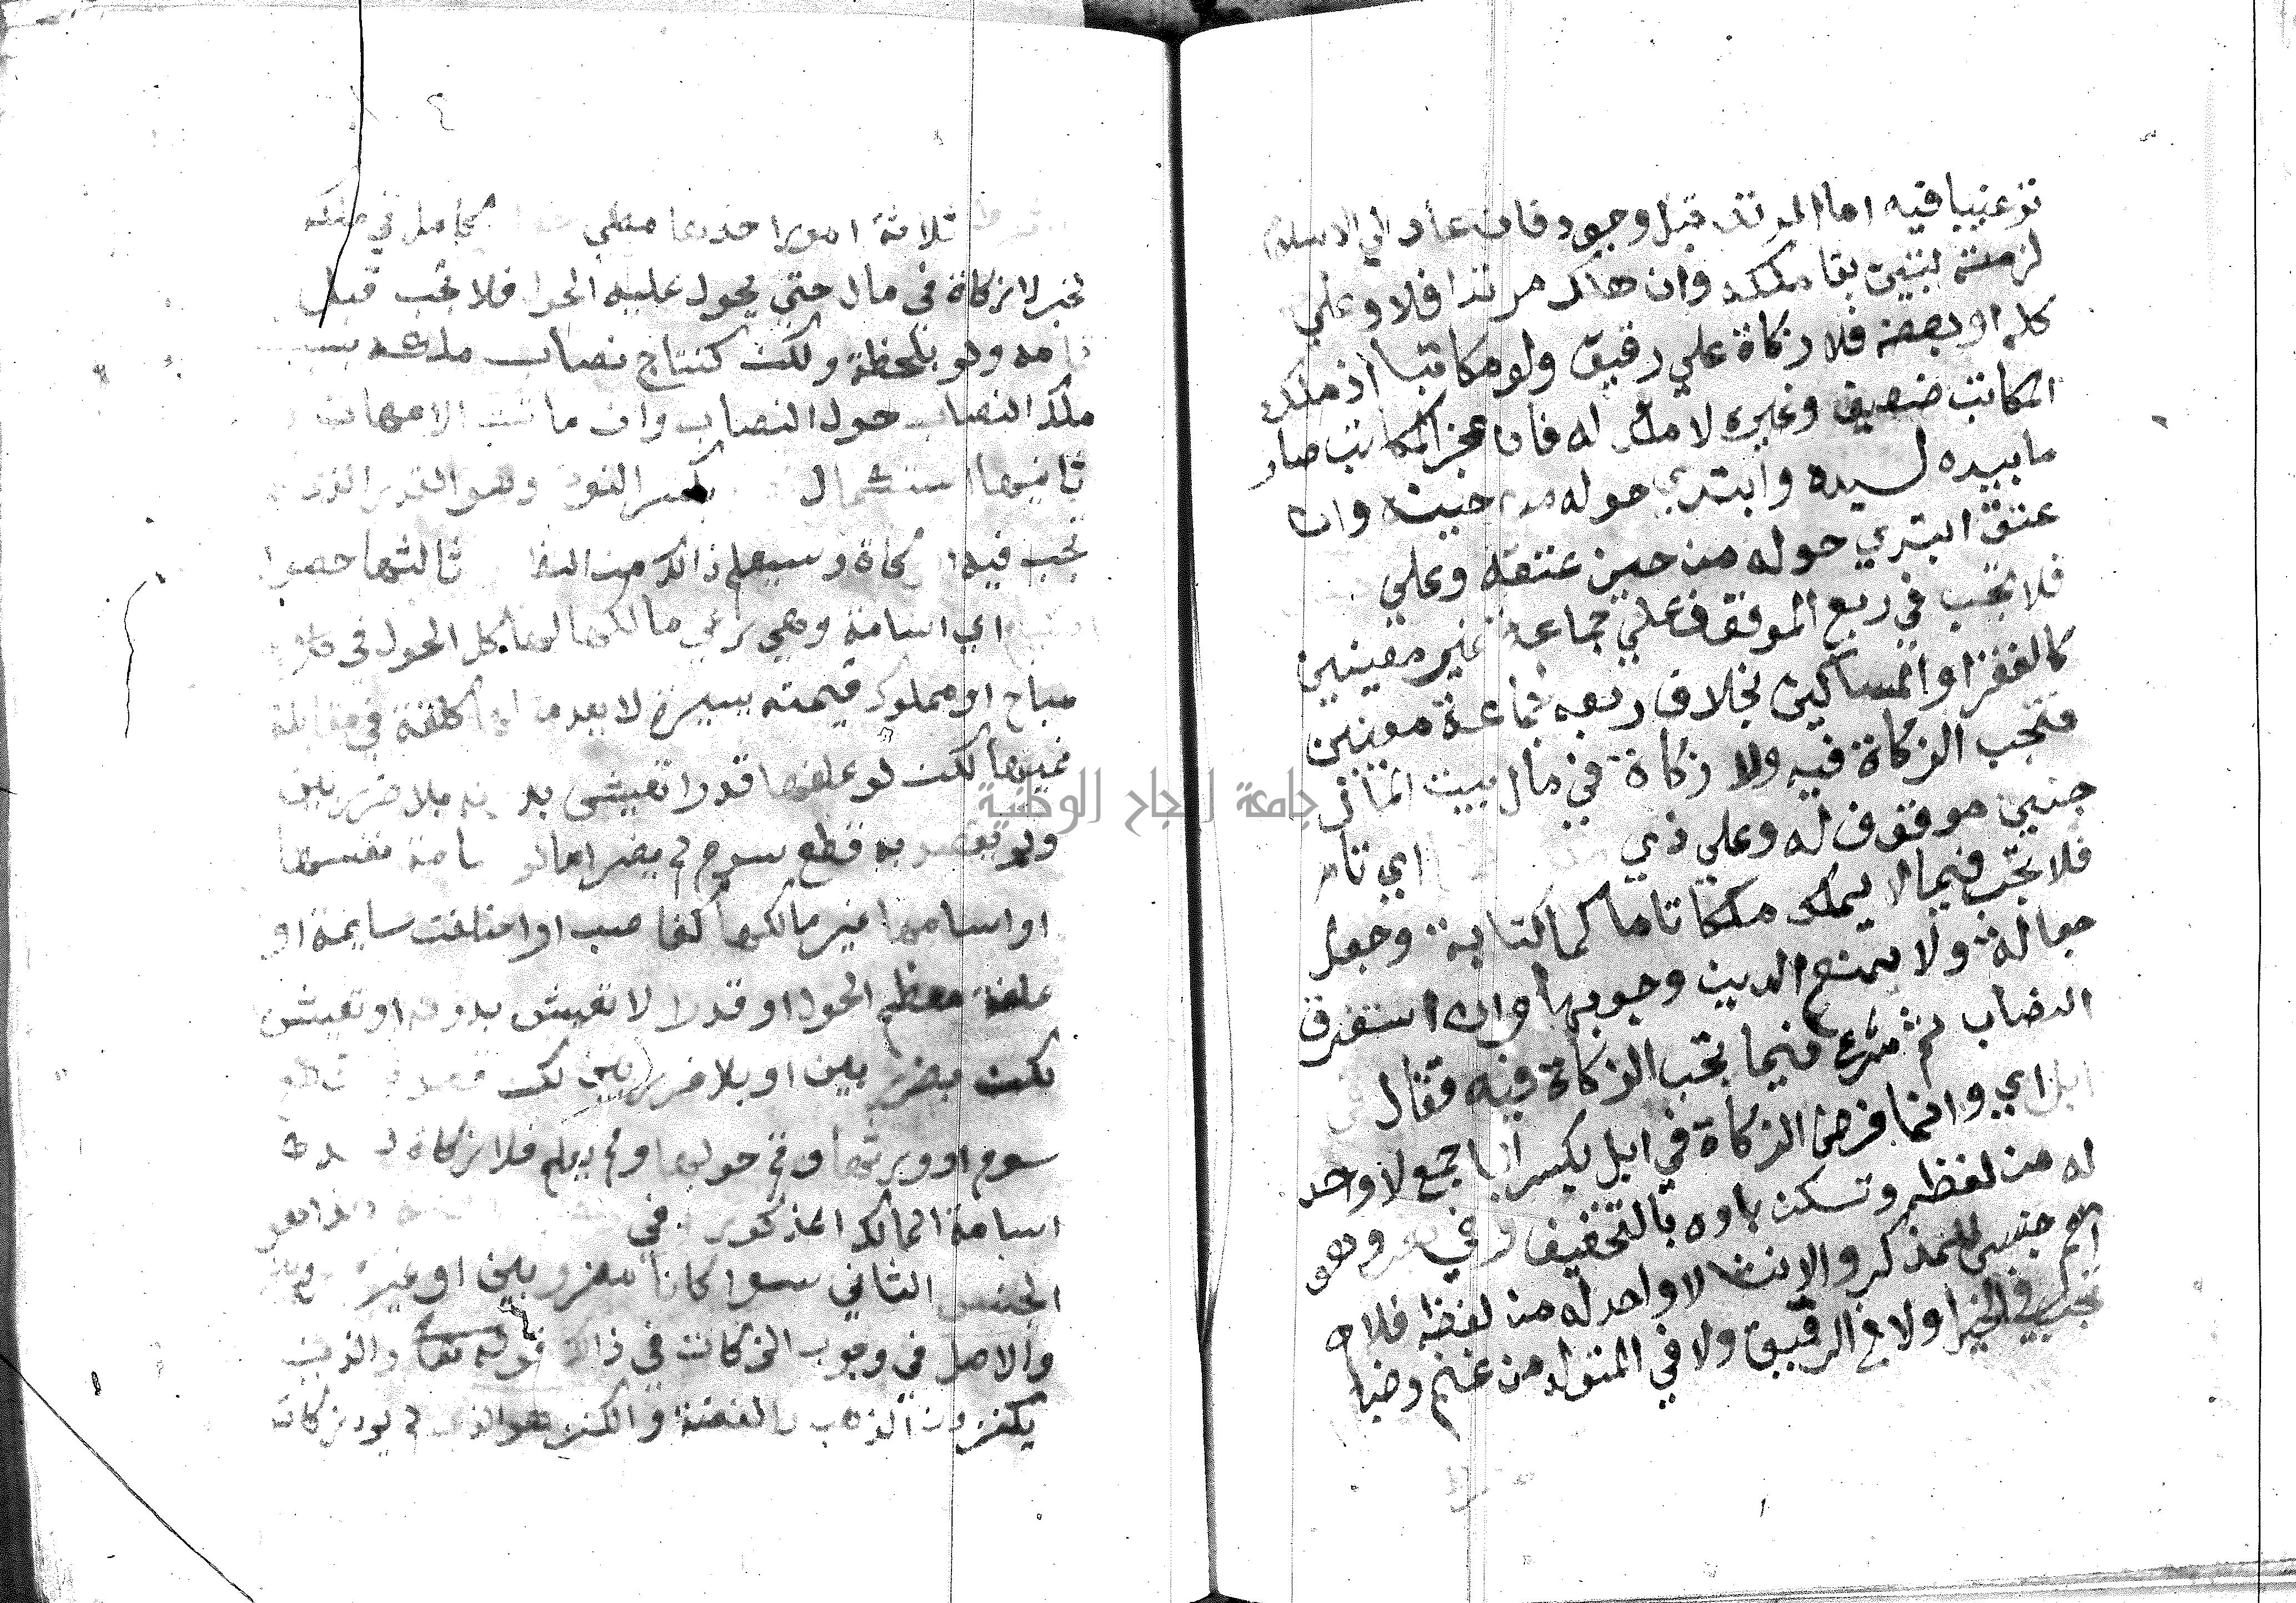 ترغيبا فيه اما المرتد قبل وجود فان عاد الي الاسلام
لزمته لتبين بقا ملكه وان هلك مرتدا فلا وعلي
كله او بعضه فلا زكاة علي رقيق ولو مكاتبا اذ ملك
المكاتب ضعيف وغيره لا ملك له فان عجز المكاتب صار
ما بيده لسيده وابتدي حوله من حينئذ وان
عتق ابتدي حوله من حين عتقه وعلي
فلا تجب في ريع الموقوف علي جماعة غير معينين
كالفقرا والمساكين بخلاف ريعه جماعة معينين
فتجب الزكاة فيه ولا زكاة في مال بيت المال
جنين موقوف له وعلي ذي اي تام
فلا تجب فيما لا يملك ملكا تاما كمال كتابة وجعل
جعالة ولا يمنع الدين وجوبها وان استغرق
النصاب ثم شرع فيما تجب الزكاة فيه فقال في
ابل اي وانما فرض الزكاة في ابل بكسر البا جمع لا واحد
له من لفظه وتسكن باوه بالتخفيف وفي وهو
اسم جنس للمذكر والانثى لا واحد له من لفظه فلا
تجب في الخيل ولا في الرقيق ولا في المتولد من غنم وضبا
ثلاثة امور احدها مضي كامل في ملكه
لخبر لا زكاة في مال حتي يحول عليه الحول فلا تجب قبل
تمامه ولو بلحظة ولكن لنتاج نصاب ملكه بسبب
ملك النصاب حول النصاب وان ماتت الامهات
ثانيها استكمال بكسر النون وهو القدر الذي
تجب فيه الزكاة وسيعلم ذالك من النظم ثالثها حصول
اي اسامة وهي رعي مالكها لها كل الحول في كلا
مباح او مملوك قيمته يسيرة لا يعد مثلها كلفة في مقابلة
نمييها لكن لو علفها قدرا تعيش بدونه بلا ضرر بين
ولم يقصد به قطع سوم لم يضر اما لو سامة بنفسها
او اسامها غير مالكها كغاصب او اعتلفت سايمة او
علفت معظم الحول او قدرا لا تعيش بدونه او تعيش
لكن بضرر بين او بلا ضرر بين لكن قصد به قطع
سوم او ورثها وتم حولها ولم يعلم فلا زكاة
اسامة المالك المذكور في
الجنس الثاني سوا كانا مضروبين او غيره
والاصل في وجوب الزكات في ذالك قوله تعا والذين
يكنزون الذهب والفضة والكنز هو الذي لم يود زكات
جامعة النجاح الوطنية